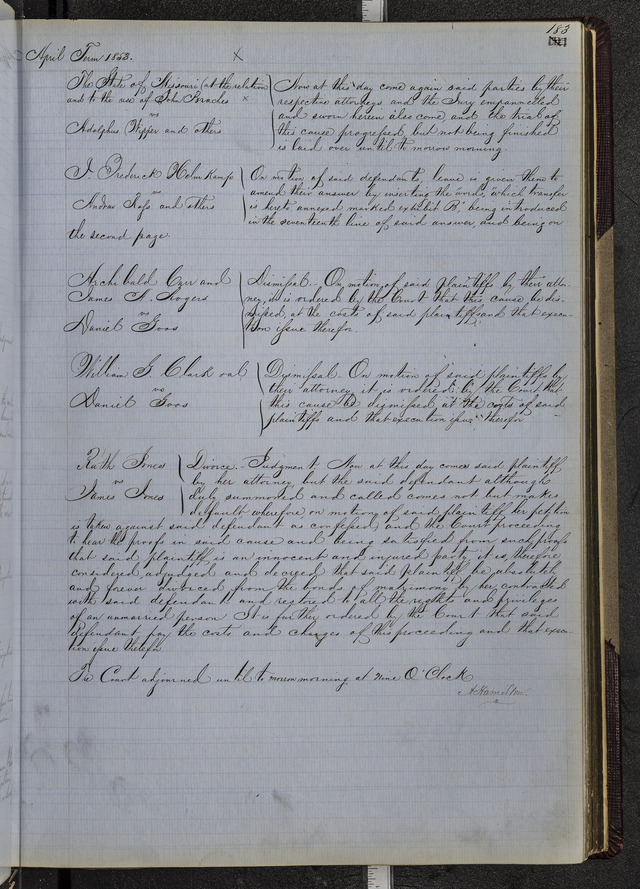 183
April Term 1853.
The State of Missouri (at the relation
and to the use of John
vs
Adolphus and others
Now at this day come again said parties by their
respective attorneys and the Jury impannelled
and sworn herein also come, and the trial of
this cause progressed, but not being finished
is laid over until to morrow morning.
J. Frederick Helmkamp
vs
Andrew and others
On motion of said defendants, leave is given them to
amend their answer by inserting the words, "which transfer
is hereto annexed marked exhibit B," being introduced
in the seventeenth line of said answer, and being on
the second page.
Archibald Carr and
James S. Rogers
vs
Daniel Goos
Dismissal. On motion of said plaintiffs by their attor-
ney, it is ordered by the Court that this cause be dis-
missed, at the costs of said plaintiffs and that execu-
tion issue therefor.
William G. Clark et al
vs
Daniel Goos
Dismissal. On motion of said plaintiffs by
their attorney it is ordered by the Court that
this cause be dismissed, at the costs of said
plaintiffs and that execution issue therefor
Ruth Jones
vs
James Jones
Divorce. Judgment. Now at this day comes said plaintiff
by her attorney, but the said defendant although
duly summoned and called comes not but makes
default wherefore on motion of said plaintiff, her petition
is taken against said defendant as confessed, and the Court proceeding
to hear the proofs in said cause and being satisfied from such proofs
that said plaintiff is an innocent and injured party, it is, therefore
considered adjudged and decreed that said plaintiff be absolutely
and forever divorced from the bonds of matrimony by her contracted
with said defendant and restored to all the rights and privileges
of an unmarried person. It is further ordered by the Court that said
defendant pay the costs and charges of this proceeding and that execu-
tion issue therefor.
The Court adjourned until to morrow morning at nine O'Clock
A Hamilton